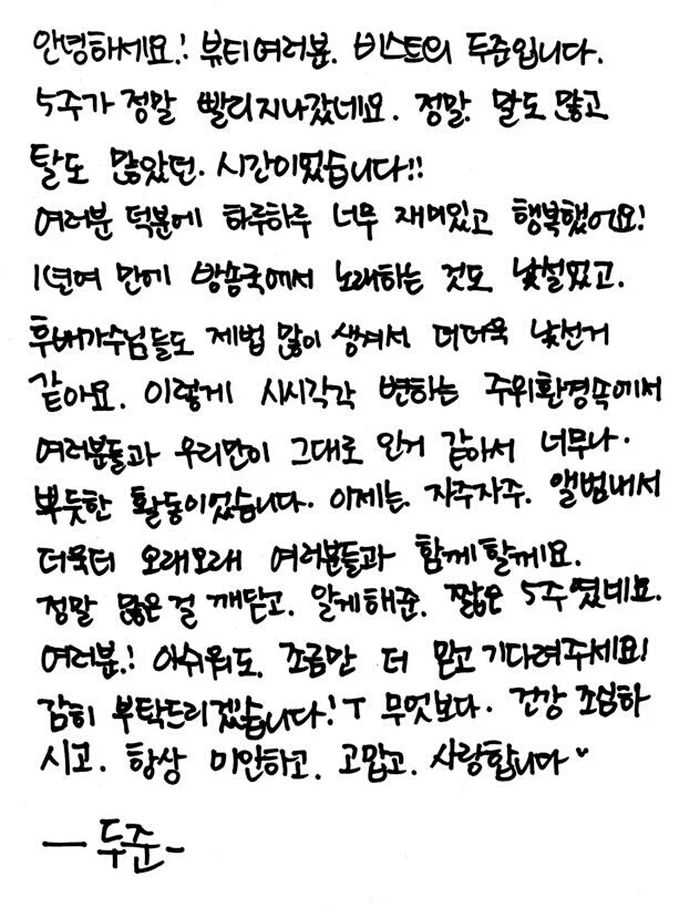 안녕하세요.! 뷰티여러분. 비스트의 두준입니다.
5주가 정말 빨리지나갔네요. 정말. 말도 많고
탈도 많았던. 시간이었습니다!!
여러분 덕분에 하루하루 너무 재미있고 행복했어요!
1년여 만에 방송국에서 노래하는 것도 낯설었고.
후배가수님들도 제법 많이 생겨서 더더욱 낯선거
같아요. 이렇게 시시각각 변하는 주위환경속에서
여러분들과 우리만이 그대로 인거 같아서 너무나.
뿌듯한 활동이었습니다. 이제는. 자주자주. 앨범내서
더욱더 오래오래 여러분들과 함께할께요.
정말 많은걸 깨닫고. 알게해준. 짧은 5주였네요.
여러분.! 아쉬워도. 조금만 더 믿고기다려주세요!
감히 부탁드리겠습니다.! T 무엇보다. 건강 조심하
시고. 항상 미안하고. 고맙고. 사랑합니다♥
— 두준 -